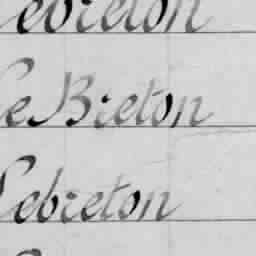 Lebreton
Le Breton
Lebreton